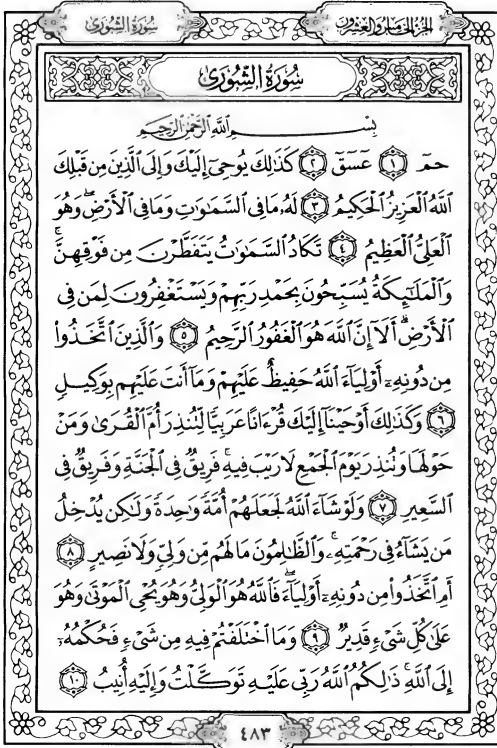 الجُزْءُ الخَامِسُ وَالعِشْرُونَ
سُورَةُ الشُّورَىٰ
سُورَةُ الشُّورَىٰ
بِسْمِ اللَّهِ الرَّحْمَٰنِ الرَّحِيمِ
حمٓ ۝١ عٓسٓقٓ ۝٢ كَذَٰلِكَ يُوحِىٓ إِلَيْكَ وَإِلَى ٱلَّذِينَ مِن قَبْلِكَ
ٱللَّهُ ٱلْعَزِيزُ ٱلْحَكِيمُ ۝٣ لَهُۥ مَا فِى ٱلسَّمَٰوَٰتِ وَمَا فِى ٱلْأَرْضِۖ وَهُوَ
ٱلْعَلِىُّ ٱلْعَظِيمُ ۝٤ تَكَادُ ٱلسَّمَٰوَٰتُ يَتَفَطَّرْنَ مِن فَوْقِهِنَّۚ
وَٱلْمَلَٰٓئِكَةُ يُسَبِّحُونَ بِحَمْدِ رَبِّهِمْ وَيَسْتَغْفِرُونَ لِمَن فِى
ٱلْأَرْضِۗ أَلَآ إِنَّ ٱللَّهَ هُوَ ٱلْغَفُورُ ٱلرَّحِيمُ ۝٥ وَٱلَّذِينَ ٱتَّخَذُوا۟
مِن دُونِهِۦٓ أَوْلِيَآءَ ٱللَّهُ حَفِيظٌ عَلَيْهِمْ وَمَآ أَنتَ عَلَيْهِم بِوَكِيلٍ
۝٦ وَكَذَٰلِكَ أَوْحَيْنَآ إِلَيْكَ قُرْءَانًا عَرَبِيًّا لِّتُنذِرَ أُمَّ ٱلْقُرَىٰ وَمَنْ
حَوْلَهَا وَتُنذِرَ يَوْمَ ٱلْجَمْعِ لَا رَيْبَ فِيهِۚ فَرِيقٌ فِى ٱلْجَنَّةِ وَفَرِيقٌ فِى
ٱلسَّعِيرِ ۝٧ وَلَوْ شَآءَ ٱللَّهُ لَجَعَلَهُمْ أُمَّةً وَٰحِدَةً وَلَٰكِن يُدْخِلُ
مَن يَشَآءُ فِى رَحْمَتِهِۦۚ وَٱلظَّٰلِمُونَ مَا لَهُم مِّن وَلِىٍّ وَلَا نَصِيرٍ ۝٨
أَمِ ٱتَّخَذُوا۟ مِن دُونِهِۦٓ أَوْلِيَآءَۖ فَٱللَّهُ هُوَ ٱلْوَلِىُّ وَهُوَ يُحْىِ ٱلْمَوْتَىٰ وَهُوَ
عَلَىٰ كُلِّ شَىْءٍ قَدِيرٌ ۝٩ وَمَا ٱخْتَلَفْتُمْ فِيهِ مِن شَىْءٍ فَحُكْمُهُۥٓ
إِلَى ٱللَّهِۚ ذَٰلِكُمُ ٱللَّهُ رَبِّى عَلَيْهِ تَوَكَّلْتُ وَإِلَيْهِ أُنِيبُ ۝١٠
٤٨٣